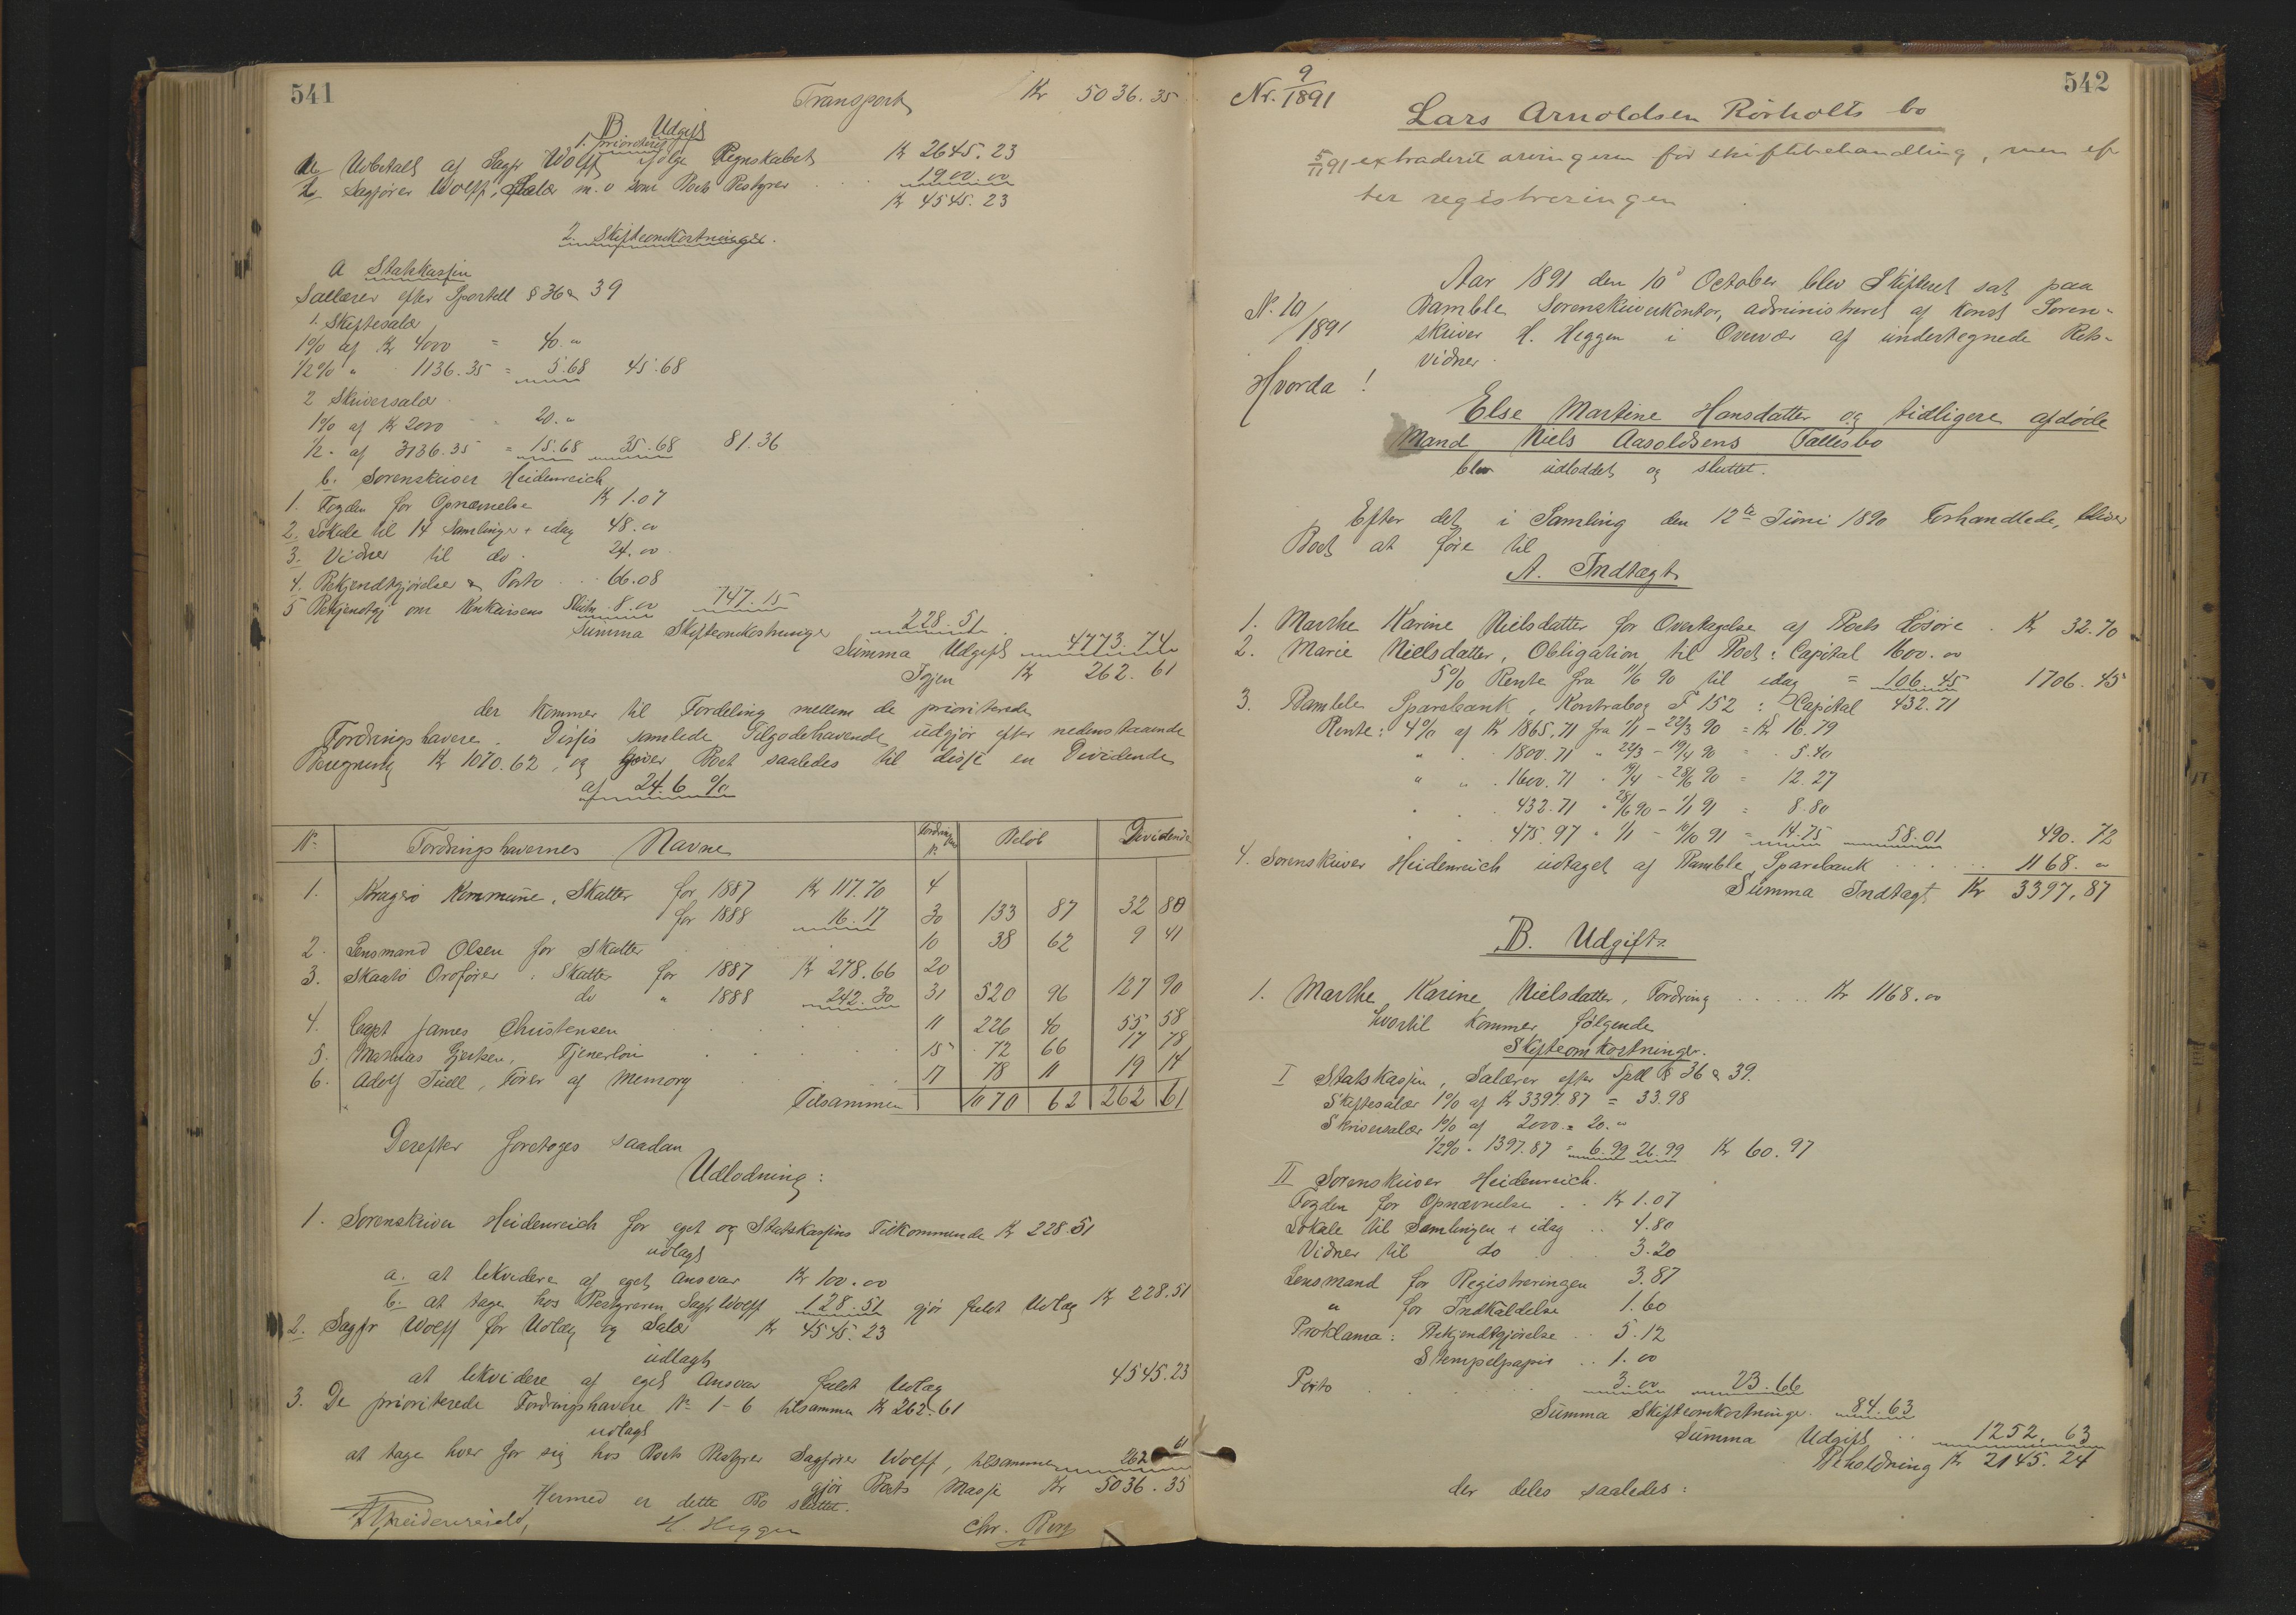 541
Transport Kr 5036.35
B Udgift
1. prioriteret
a Udbetalt af Sagfr Wolff ifølge Regnskabet Kr 2645.23
b Sagfører Wolff, Salær m.v som Boets Bestyrer 1900.00
Kr 4545.23
2. Skifteomkostninger.
A Statskassen
Sallærer efter Sportell § 36 & 39
1. Skiftesalær
1% af Kr 4000 = 40."
1/2% " 1136.35 = 5.68 45.68
2 Skriversalær
1% af Kr 2000 20."
1/2 " af 3136.35 = 15.68 35.68 81.36
b. Sorenskriver Heidenreich
1. Fogden for Opnævnelse Kr 1.07
2. Lokale til 14 Samlinger + idag 48.00
3. Vidner til do. 24.00
4. Bekjendtgjørelser & Porto 66.08
5 Bekjendtgj om Konkursens Slutn. 8.00 147.15
Summa Skifteomkostninger 228.51
Summa Udgift 4773.74
Igjen Kr 262.61
der kommer til Fordeling mellem de prioriterede
Fordringshavere. Disses samlede Tilgodehavende udgjør efter nedenstaaende
Beregning Kr 1070.62, og giver Boet saaledes til disse en Dividende
af 24.6 %
No. Fordringshavernes Navne Fordrings No. Beløb Dividende
1. Kragerø Kommune, Skatter for 1887 Kr 117.70 4
for 1888 16.17 30 133 87 32 80
2. Lensmand Olsen for Skatter 10 38 62 9 41
3. Skaatø Ordfører: Skatter for 1887 Kr 278.66 20
do " 1888 242.30 31 520 96 127 90
4. Capt James Christensen 11 226 40 55 58
5. Mathias Gjertsen, Tjenerløn 15 72 66 17 78
6. Adolf Juell, Fører af Memory 17 78 11 19 14
Tilsammen 1070 62 262 61
Derefter foretoges saadan
Udlodning:
1. Sorenskriver Heidenreich for eget og Statskassens Tilkommende Kr 228.51
udlagt
a. at likvidere af eget Ansvar Kr 100.00
b. at tage hos Bestyreren Sagf Wolff 128.51 gjør fuldt Udlæg Kr 228.51
2. Sagfr Wolff for Udlæg og Salær Kr 4545.23
udlagt
at likvidere af eget Ansvar fuldt Udlæg 4545.23
3. De prioriterede Fordringshavere No 1-6 tilsammen Kr 262.61
udlagt
at tage hver for sig hos Boets Bestyrer Sagfører Wolff, tilsammen 262 61
gjør Boets Masse Kr 5036.35
Hermed er dette Bo sluttet.
Heidenreich, H. Heggen Chr. Berg
542
Nr. 9/1891
Lars Arnoldsen Rörholts bo
5/11 91 extraderit arvingerne før skiftebehandling, men ef
ter registreringen
Aar 1891 den 10d October blev Skifteret sat paa
No. 10/1891
Bamble Sorenskriverkontor, administreret af Konst Soren-
skriver H. Heggen i Overvær af undertegnede Rets-
vidner.
Hvorda!
Else Martine Hansdatter og tidligere afdøde
Mand Niels Aasoldsens Fællesbo
blev udloddet og sluttet.
Efter det i Samling den 12te Juni 1890 Forhandlede, bliver
Boet at føre til
A. Indtægt
1. Marthe Karine Nielsdatter for Overtagelse af Boets Løsøre Kr 32.70
2. Marie Nielsdatter, Obligation til Boet: Capital 1600.00
5% Rente fra 11/6 90 til idag = 106.45 1706.45
3. Bamble Sparebank, Kontrabog F 152: Capital 432.71
Rente: 4% af Kr 1865.71 fra 1/1 - 22/3 90 = Kr 16.79
" " 1800.71 " 22/3 - 19/4 90 5.40
" " 1600.71 " 19/4 - 28/6 90 = 12.27
" " 432.71 " 28/6 90 - 1/1 91 = 8.80
" " 475.97 " 1/1 - 10/10 91 = 14.75 58.01 490.72
4. Sorenskriver Heidenreich udtaget af Bamble Sparebank 1168."
Summa Indtægt Kr 3397.87
B. Udgift
1. Marthe Karine Nielsdatter, Fordring Kr 1168.00
hvortil kommer følgende
Skifteomkostninger.
I Statskassen, Salærer efter Sptl § 36 & 39.
Skiftesalær 1% af Kr 3397.87 = 33.98
Skriversalær 1% af 2000 = 20."
1/2% " 1397.87 = 6.99 26.99 Kr 60.97
II Sorenskriver Heidenreich.
Fogden for Opnævnelse Kr 1.07
Lokale til Samlingen + idag 4.80
Vidner til do 3.20
Lensmand for Registreringen 3.87
" for Indkaldelse 1.60
Proklama: Bekjendtgjørelse 5.12
Stempelpapir 1.00
Porto 3.00 23.66
Summa Skifteomkostninger 84.63
Summa Udgift 1252.63
Beholdning Kr 2145.24
der deles saaledes: